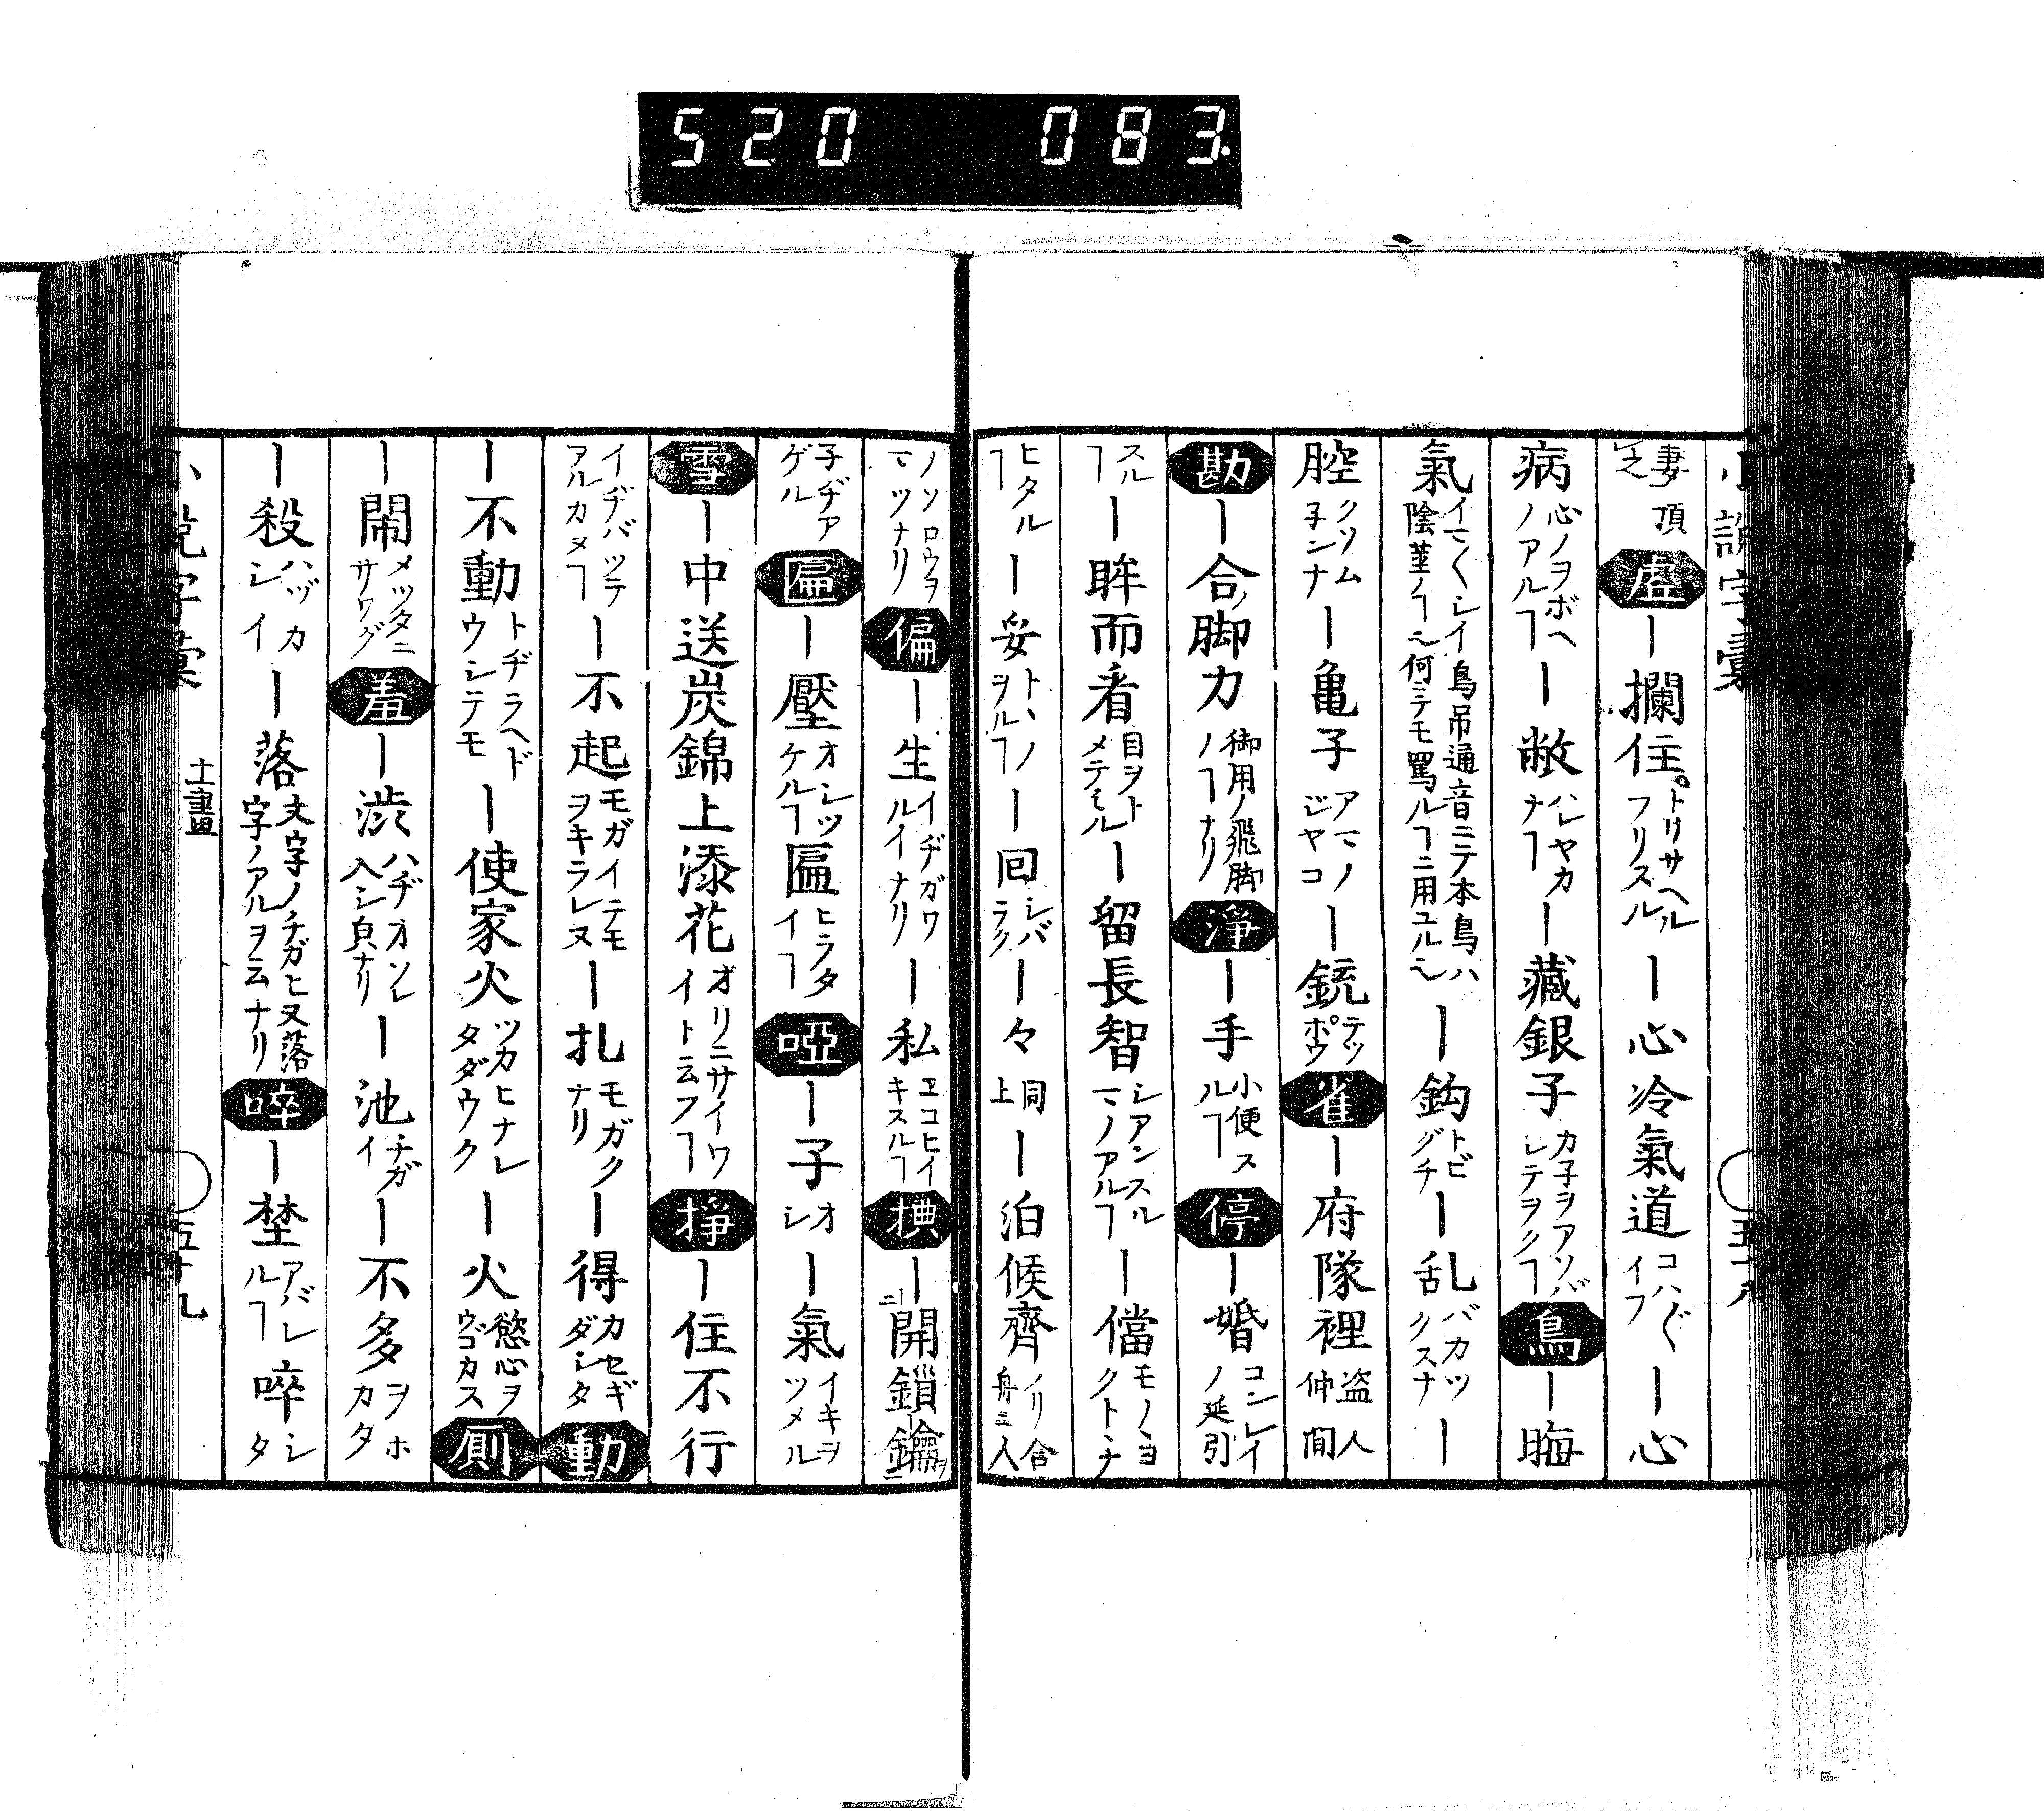 520 083
小説字彙
妻頂 虚 ー攔住 トリサヘル フリスル ー心冷氣道 コハ〲 イフ ー心
病 心ノヲボヘ ノアルヿ ー敝 ハレヤカ ナヿ ー藏銀子 カ子ヲアソバ レテヲクヿ 鳥 ー晦
氣 イマ〱シイ 鳥吊通音ニテ本鳥ハ 陰莖ノヿ也何ニテモ罵ルヿニ用ユル也 ー鈎 トビ グチ ー乱 バカツ クスナ ー
腔 クソム 子ンナ ー亀子 アマノ ジヤコ ー銃 テツ ポウ 雀 ー府隊裡 盗人 仲間
勘 ー合脚力 御用ノ飛脚 ノヿナリ 淨 ー手 小便ス ルヿ 停 ー婚 コンレイ ノ延引
スル ヿ ー眸而看 目ヲト メテミル ー留長智 シアンスル マノアルヿ ー儅 モノヨ クトヽナ
ヒタル ヿ ー妥 トヽノ ヲルヿ ー回 シバ ラク ー々 同上 ー泊候齊 イリ合 舟ニ入
ノソロウヲ マツナリ 偏 ー生 イヂガワ ルイナリ ー私 ヱコヒイ キスルヿ 捵 ー開鎖鑰
子ヂア ゲル 匾 ー壓 オシツ ケルヿ 匾 ヒラタ イヿ 啞 ー子 オ シ ー氣 イキヲ ツメル
雪 ー中送炭錦上添花 オリニサイワ イトニフヿ 掙 ー住不行
イヂバツテ アルカヌヿ ー不起 モガイテモ ヲキラレヌ ー扎 モガク ナリ ー得 カセギ ダシタ 動
ー不動 トヂラヘド ウシテモ ー使家火 ツカヒナレ タダウク ー火 慾心ヲ ウゴカス 厠
ー閙 メツタニ サワグ 羞 ー渋 ハヂオソレ ヘシ皃ナリ ー池 チガ イ ー不多 ヲホ カタ
ー殺 ハヅカ シイ ー落 文字ノチガヒ又落 字ノアルヲ云ナリ 啐 ー埜 アバレ ルヿ 啐 シ タ
小説字彙 十一畫 五十九